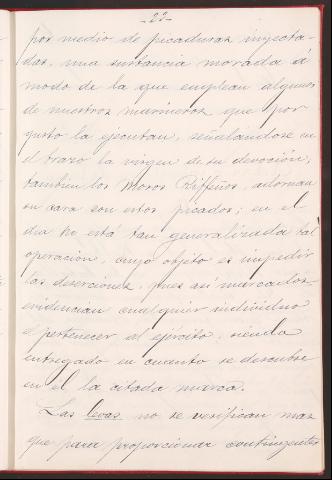 -23-
por medio de picaduras inyecta-
das, una sustancia morada á
modo de la que emplean algunos
de nuestros marineros, que por
gusto la ejecutan, señalándose en
el brazo la virgen de su devoción,
tambien los Moros Riffeños, adornan
su cara con estos picados; en el
dia no está tan generalizada tal
operacion, cuyo objeto es impedir
las deserciones, pues así marcados
evidencian cualquier individuo
el pertenecer al ejército, siendo
entregado en cuanto se descubre
en el la citada marca.
Las levas no se verifican mas
que para proporcionar contingentes